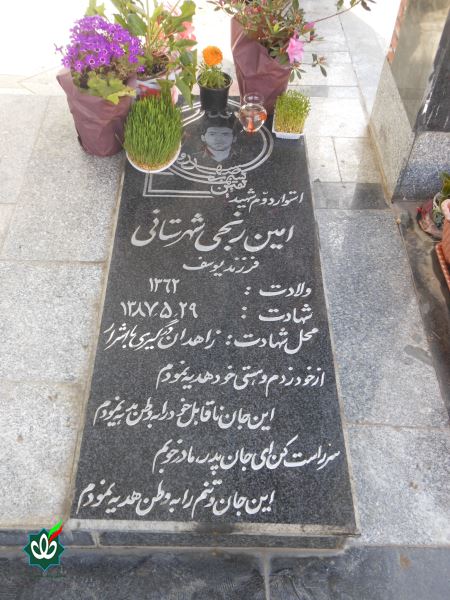 استوار دوّم شهید
امین رنجی شهرستانی
فرزند یوسف
ولادت : ۱۳۶۲
شهادت : ۱۳۸۷٫۵٫۲۹
محل شهادت : زاهدان درگیری با اشرار
از خود زدم و هستی خود هدیه نمودم
این جان ناقابل خود را به وطن هدیه نمودم
سر راست کن ای جان پدر، مادر خوبم
این جان و تنم را به وطن هدیه نمودم